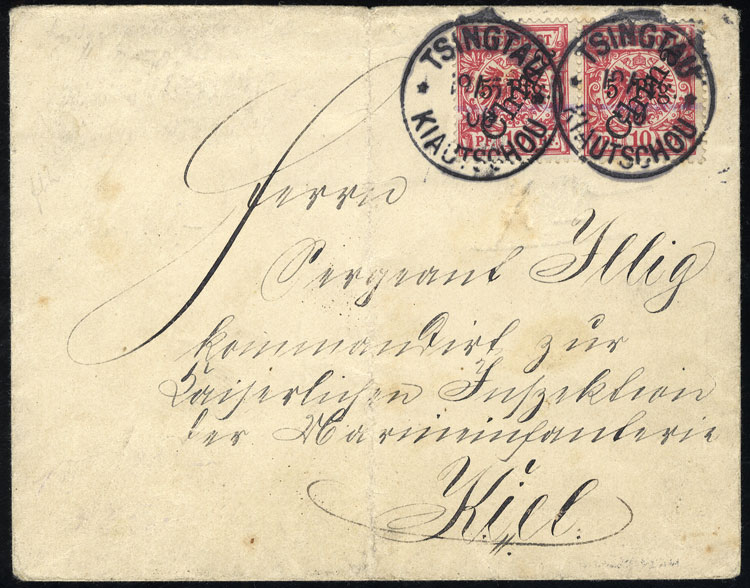 TSINGTAU
KIAUTSCHOU
China
10
TSINGTAU
KIAUTSCHOU
China
10
Herrn
Sergeant Illig
kommandirt zur
Kaiserlichen Inspektion
der Marineinfanterie
Kiel.